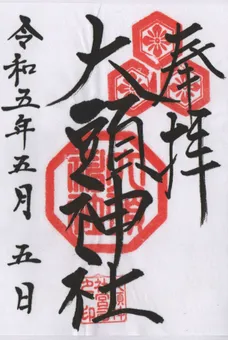 奉拝
大頭神社
令和五年五月五日